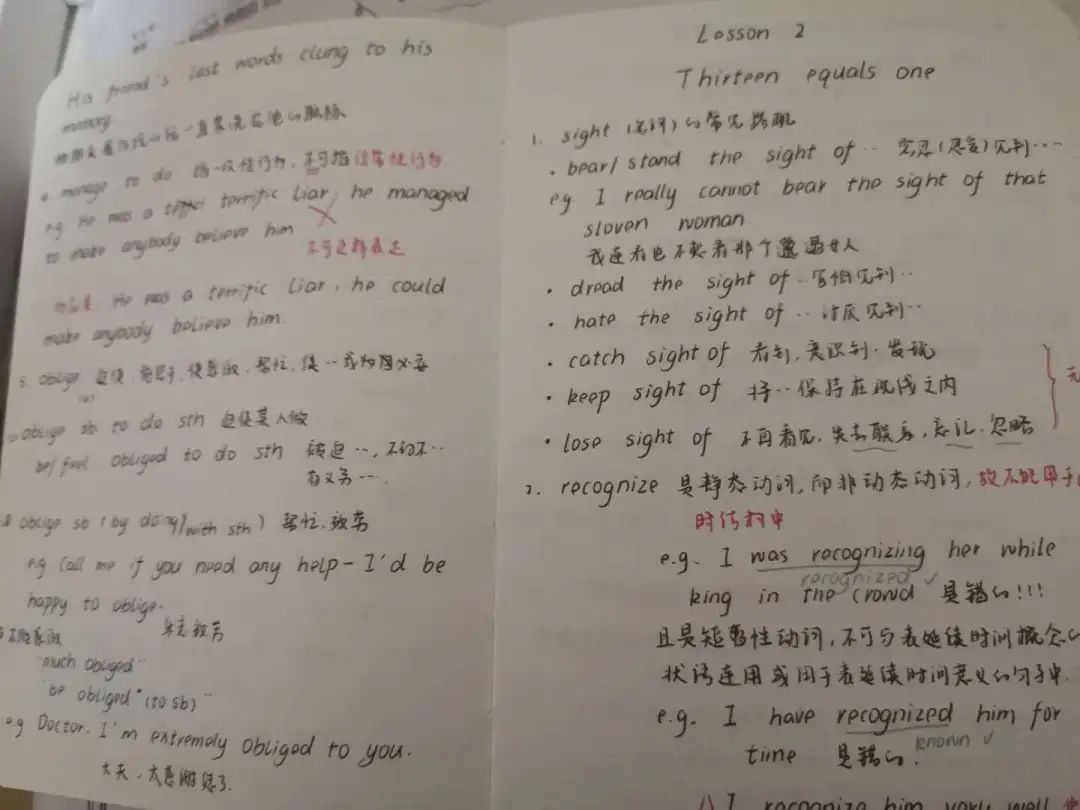 His friend's last words clung to his
memory
manage to do 指一次性行为, 不可指经常性行为
e.g He was a terrific liar, he managed
to make anybody believe him
不可这样表达
He was a terrific liar, he could
make anybody believe him.
5. oblige 迫使, 使感激, 帮忙, 使··成为
(v)
oblige sb to do sth 迫使某人做
be/feel obliged to do sth 被迫··, 不得不··
有义务···.
oblige sb (by doing/with sth) 帮忙, 效劳
e.g Call me if you need any help - I'd be
happy to oblige.
乐意效劳
"much obliged"
"be obliged" (to sb)"
e.g Doctor, I'm extremely obliged to you.
大夫, 太感谢您了.
Lesson 2
Thirteen equals one
1. sight (名词) 的常见搭配
· bear/stand the sight of ·· 容忍(忍受)见到···
eg. I really cannot bear the sight of that
sloven woman
我连看也不想看那个邋遢女人
· dread the sight of ·· 害怕见到··
· hate the sight of ·· 讨厌见到··
· catch sight of 看到, 意识到, 发现
· keep sight of 将··保持在视线之内
· lose sight of 不再看见, 失去联系, 忘记, 忽略
无
2. recognize 是静态动词, 即非动态动词, 故不能用于
时结构中
e.g. I was recognizing her while
recognized ✓
king in the crowd 是错的!!!
且是短暂性动词, 不可与表延续时间概念的
状语连用或用于表延续时间意义的句子中.
e.g. I have recognized him for
time 是错的.
known ✓
I recognize him very well